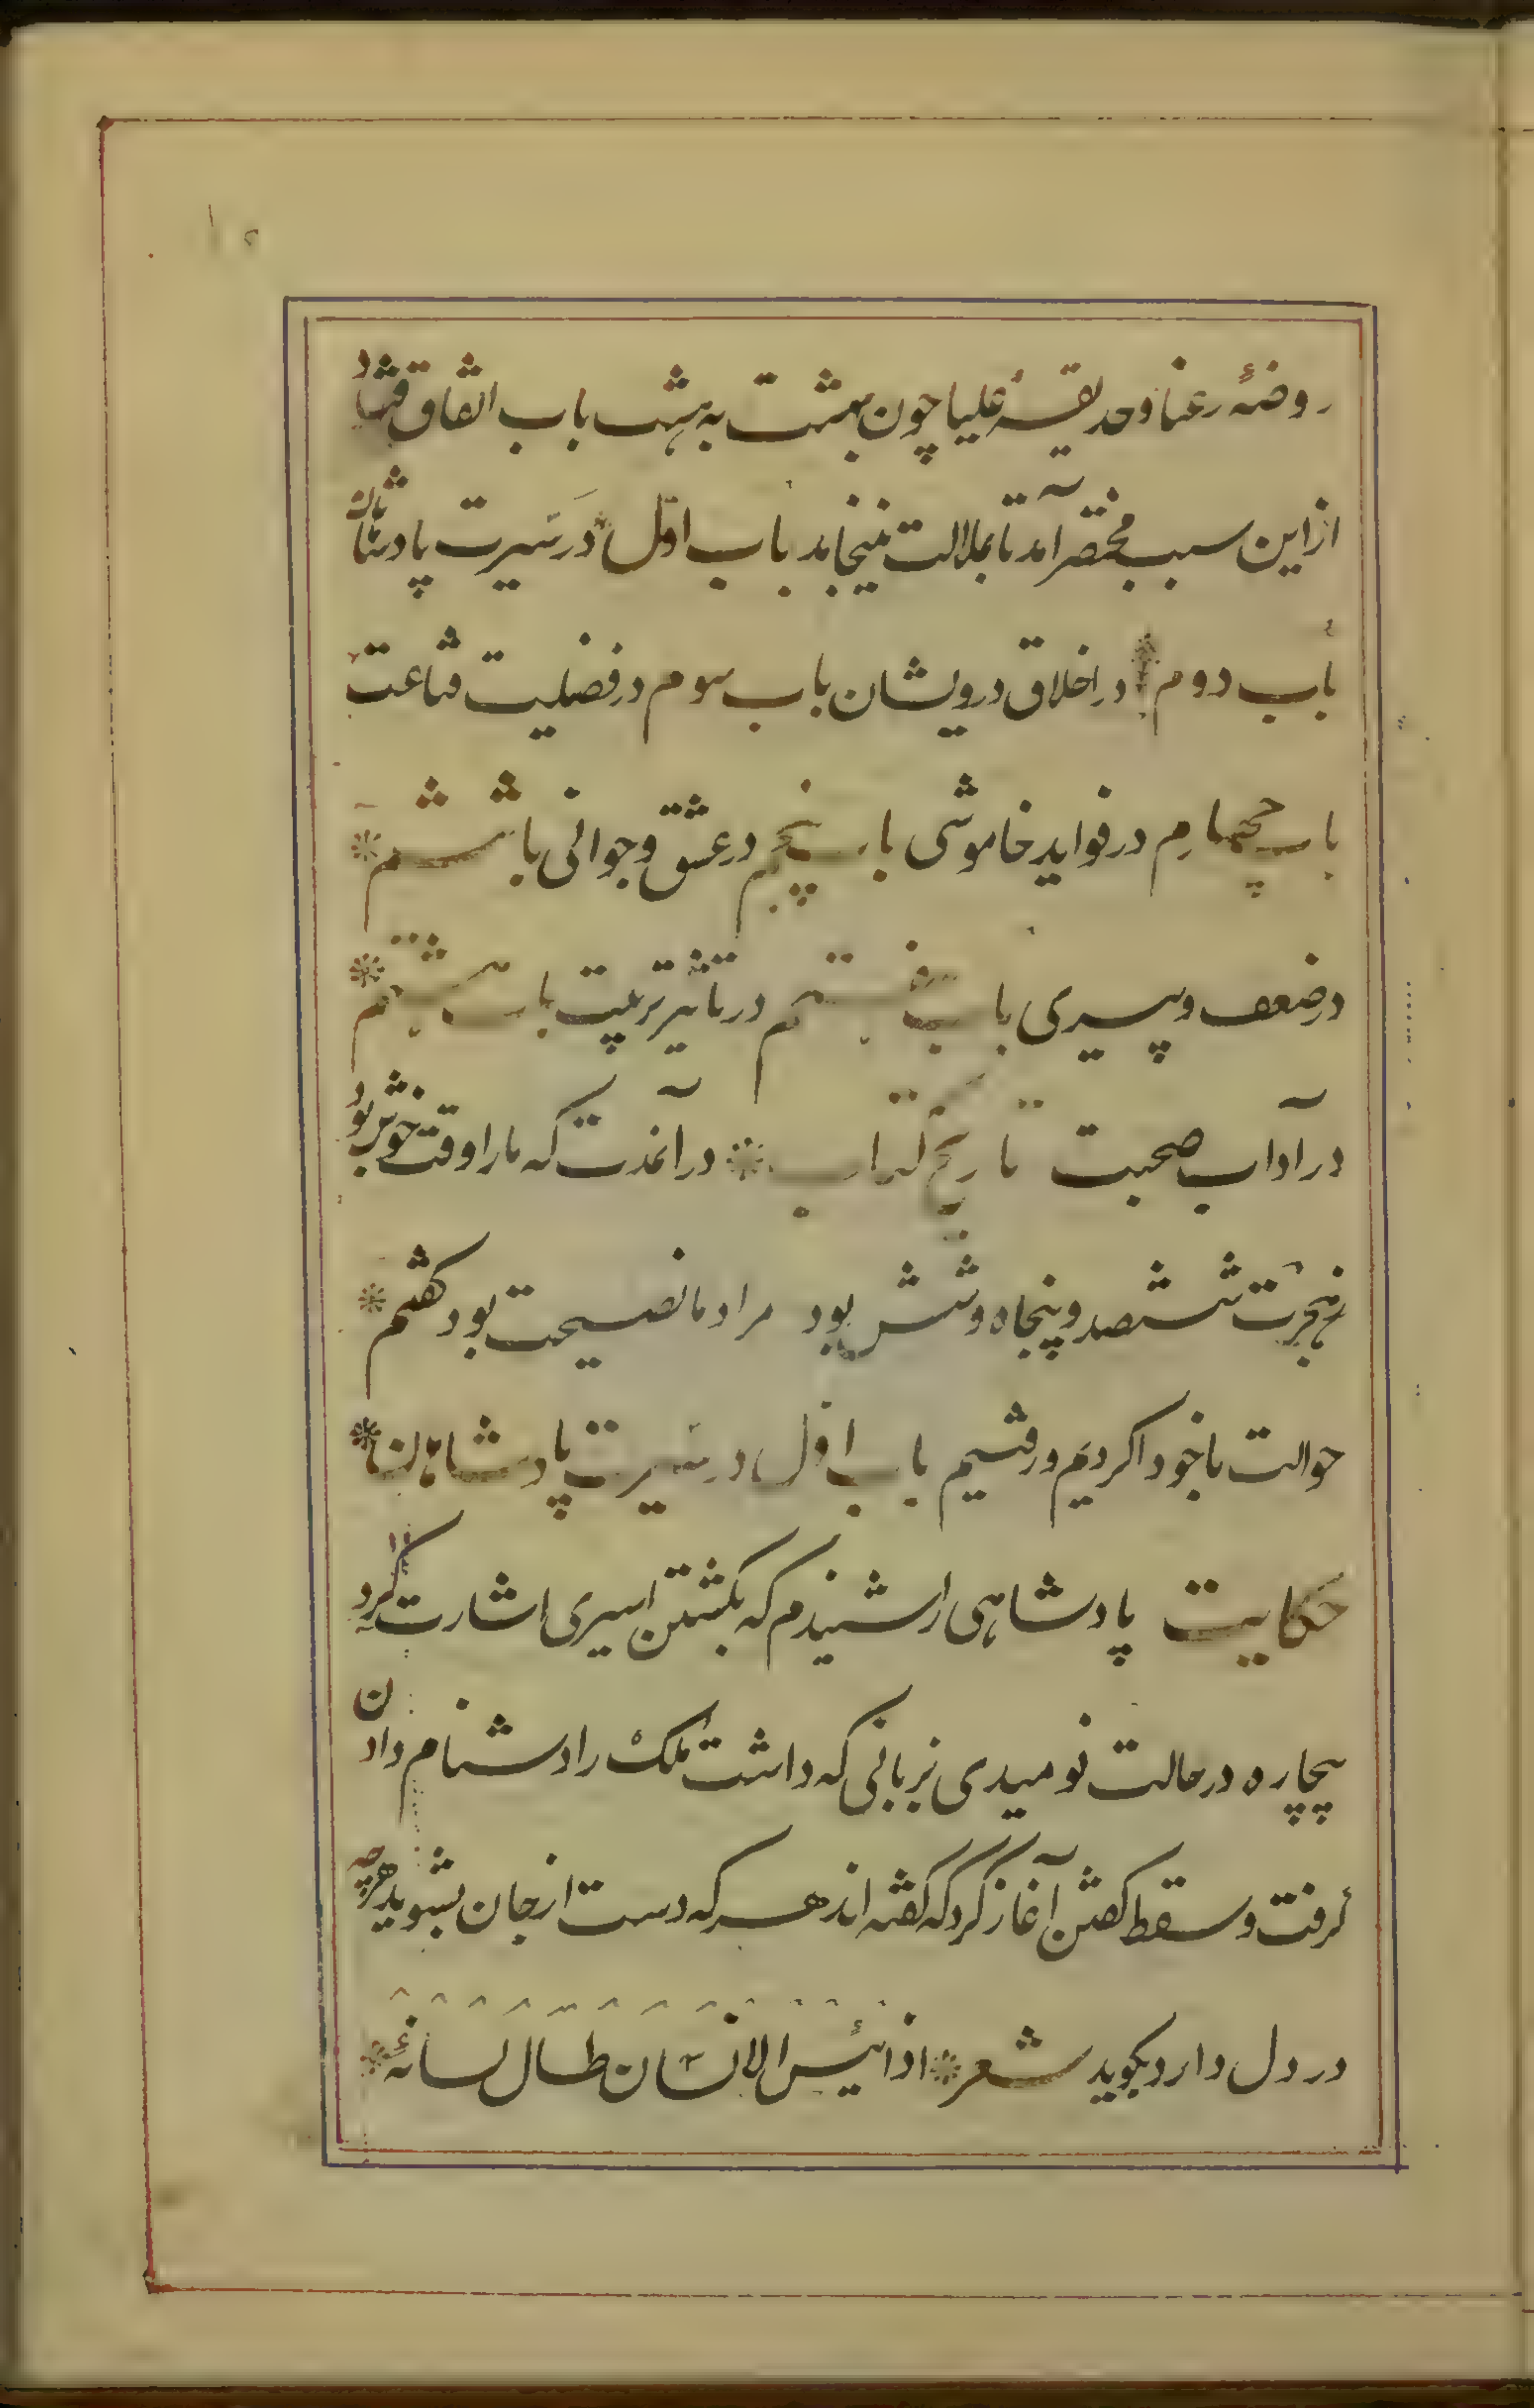 ۱۵
روضهٔ رعنا وحدیقهٔ علیا چون بهشت به هشت باب اتفاق افتاد
از این سبب مختصر آمد تا بملالت نینجامد باب اوّل در سیرت پادشاهان
باب دوم در اخلاق درویشان باب سوم در فضلیت قناعت
باب چهارم در فواید خاموشی باب پنجم در عشق و جوانی باب ششم
در ضعف و پیری باب هفتم در تاثیر تربیت باب هشتم
در آداب صحبت تاریخ کتاب در آنمدت که ما را وقت خوش بود
ز هجرت ششصد و پنجاه و شش بود مراد ما نصیحت بود گفتیم
حوالت با خودا کردیم و رفتیم باب اوّل در سیرت پادشاهان
حکایت پادشاهی را شنیدم که بکشتن اسیری اشارت کرد
بیچاره در حالت نومیدی بزبانی که داشت ملک را دشنام دادن
گرفت و سقط گفتن آغاز کرد که گفته اند هر که دست از جان بشوید هرچه
در دل دارد بگوید شعر اذا یئس الانسان طال لسانهٔ